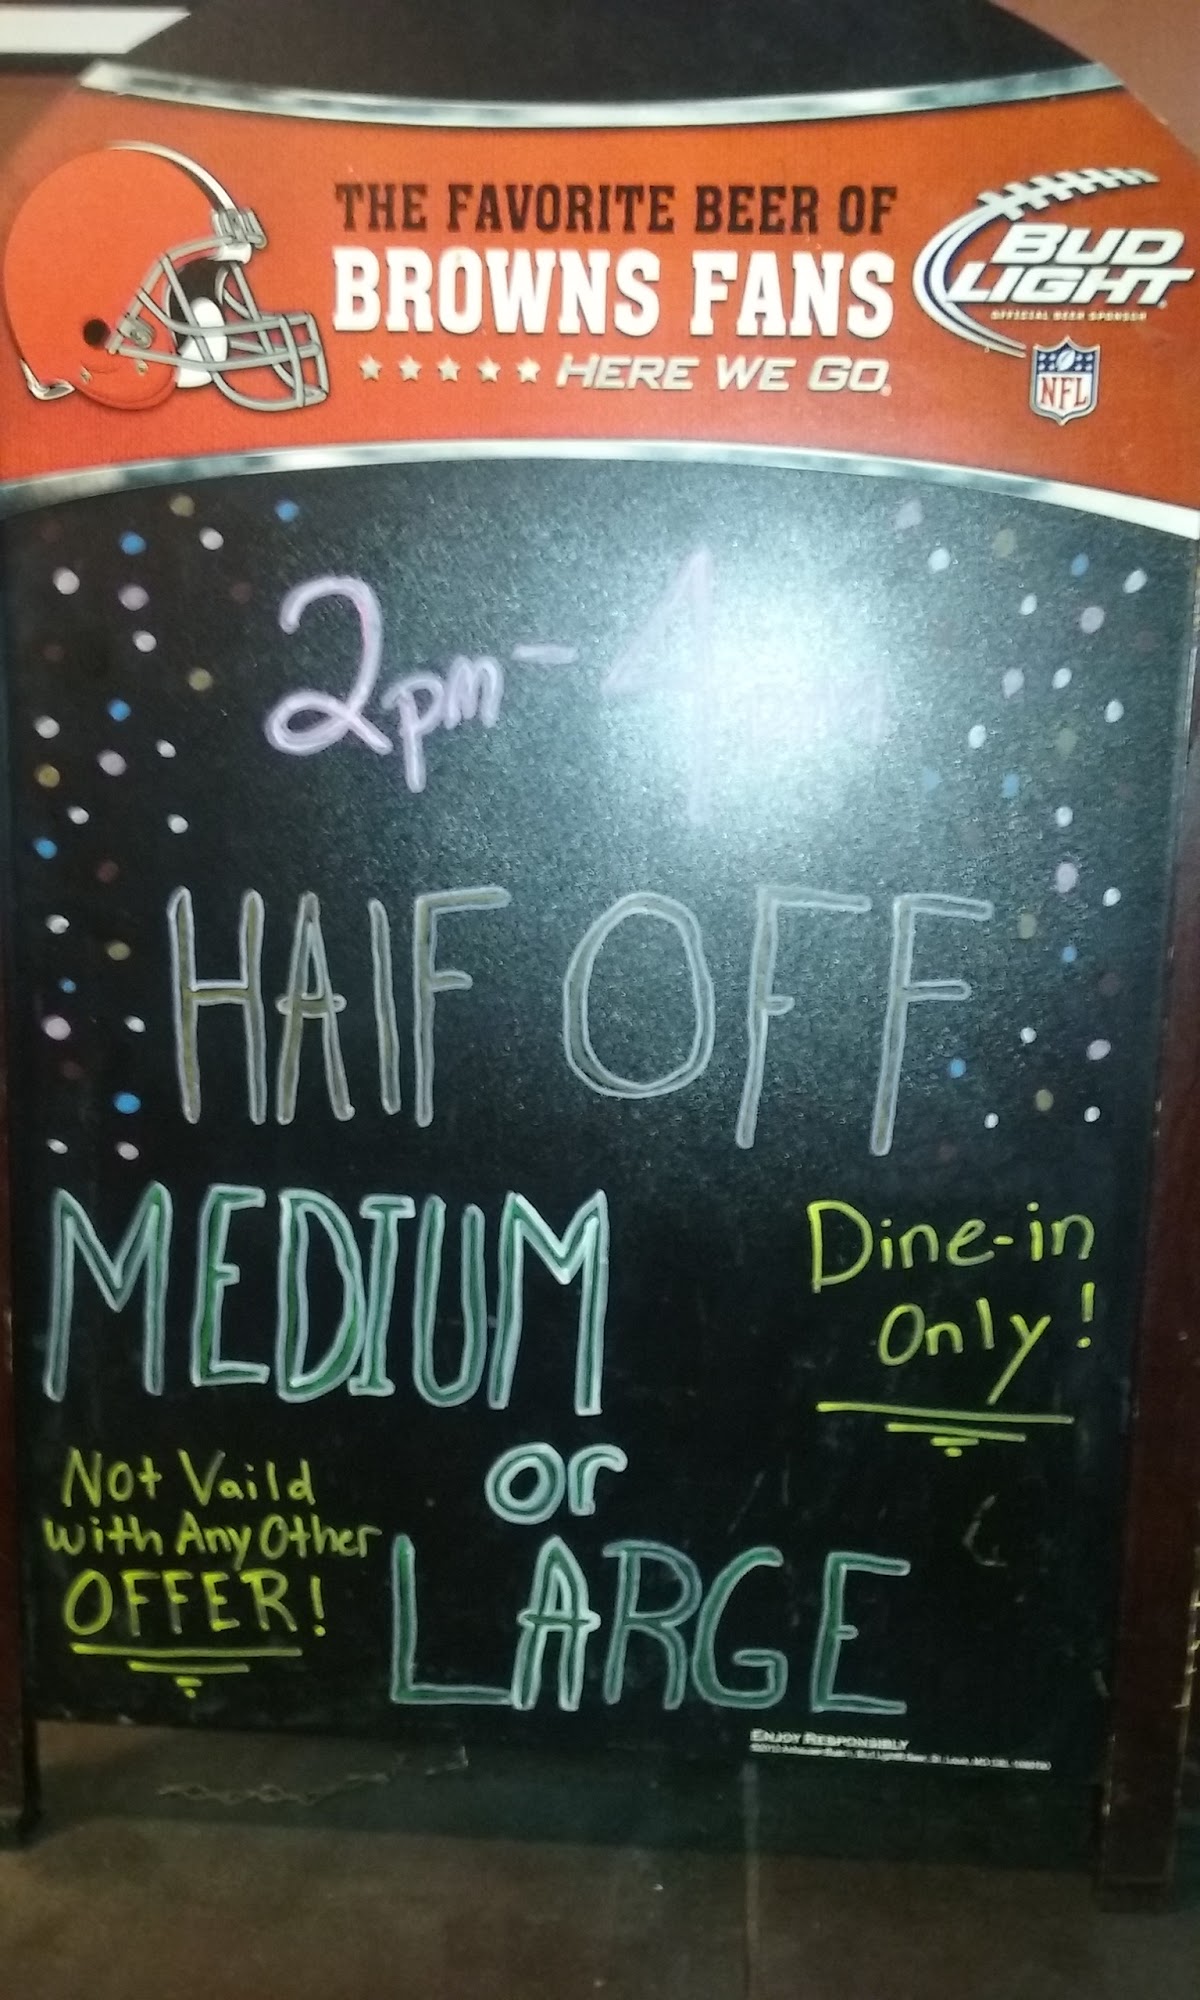 THE FAVORITE BEER OF
BROWNS FANS
HERE WE GO.
BUD
LIGHT
OFFICIAL BEER SPONSOR
NFL
2pm - 4pm
HAlF OFF
MEDIUM
or
LARGE
Dine-in
Only!
Not Vaild
with Any Other
OFFER!
ENJOY RESPONSIBLY